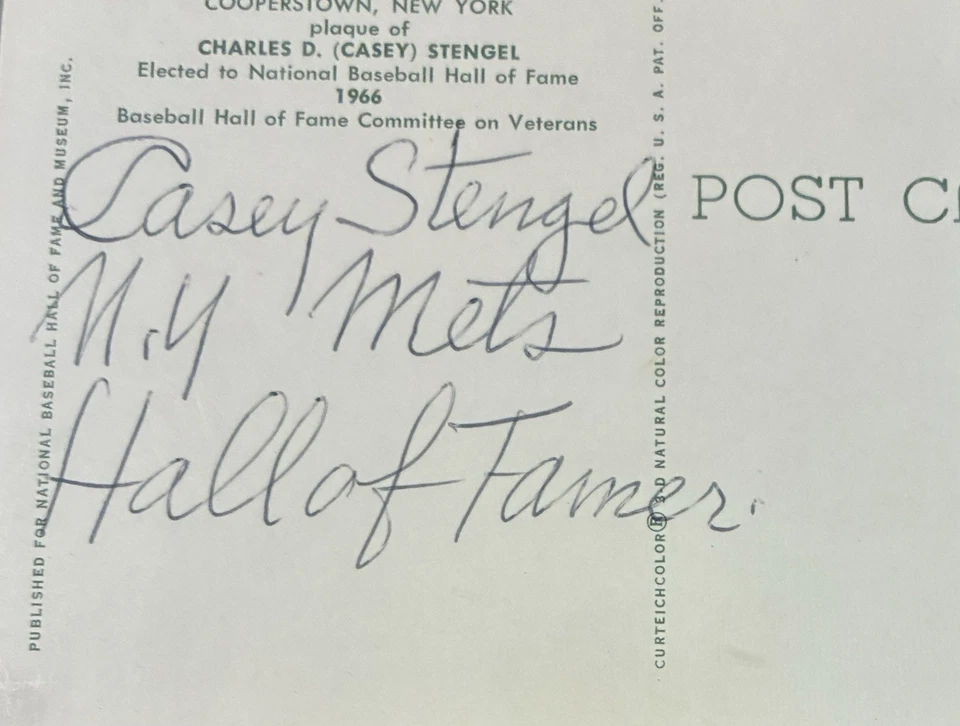 COOPERSTOWN, NEW YORK
plaque of
CHARLES D. (CASEY) STENGEL
Elected to National Baseball Hall of Fame
1966
Baseball Hall of Fame Committee on Veterans
Casey Stengel
N.Y Mets
Hall of Famer.
PUBLISHED FOR NATIONAL BASEBALL HALL OF FAME AND MUSEUM, INC.
CURTEICHCOLOR® 3-D NATURAL COLOR REPRODUCTION (REG. U. S. A. PAT. OFF.
POST